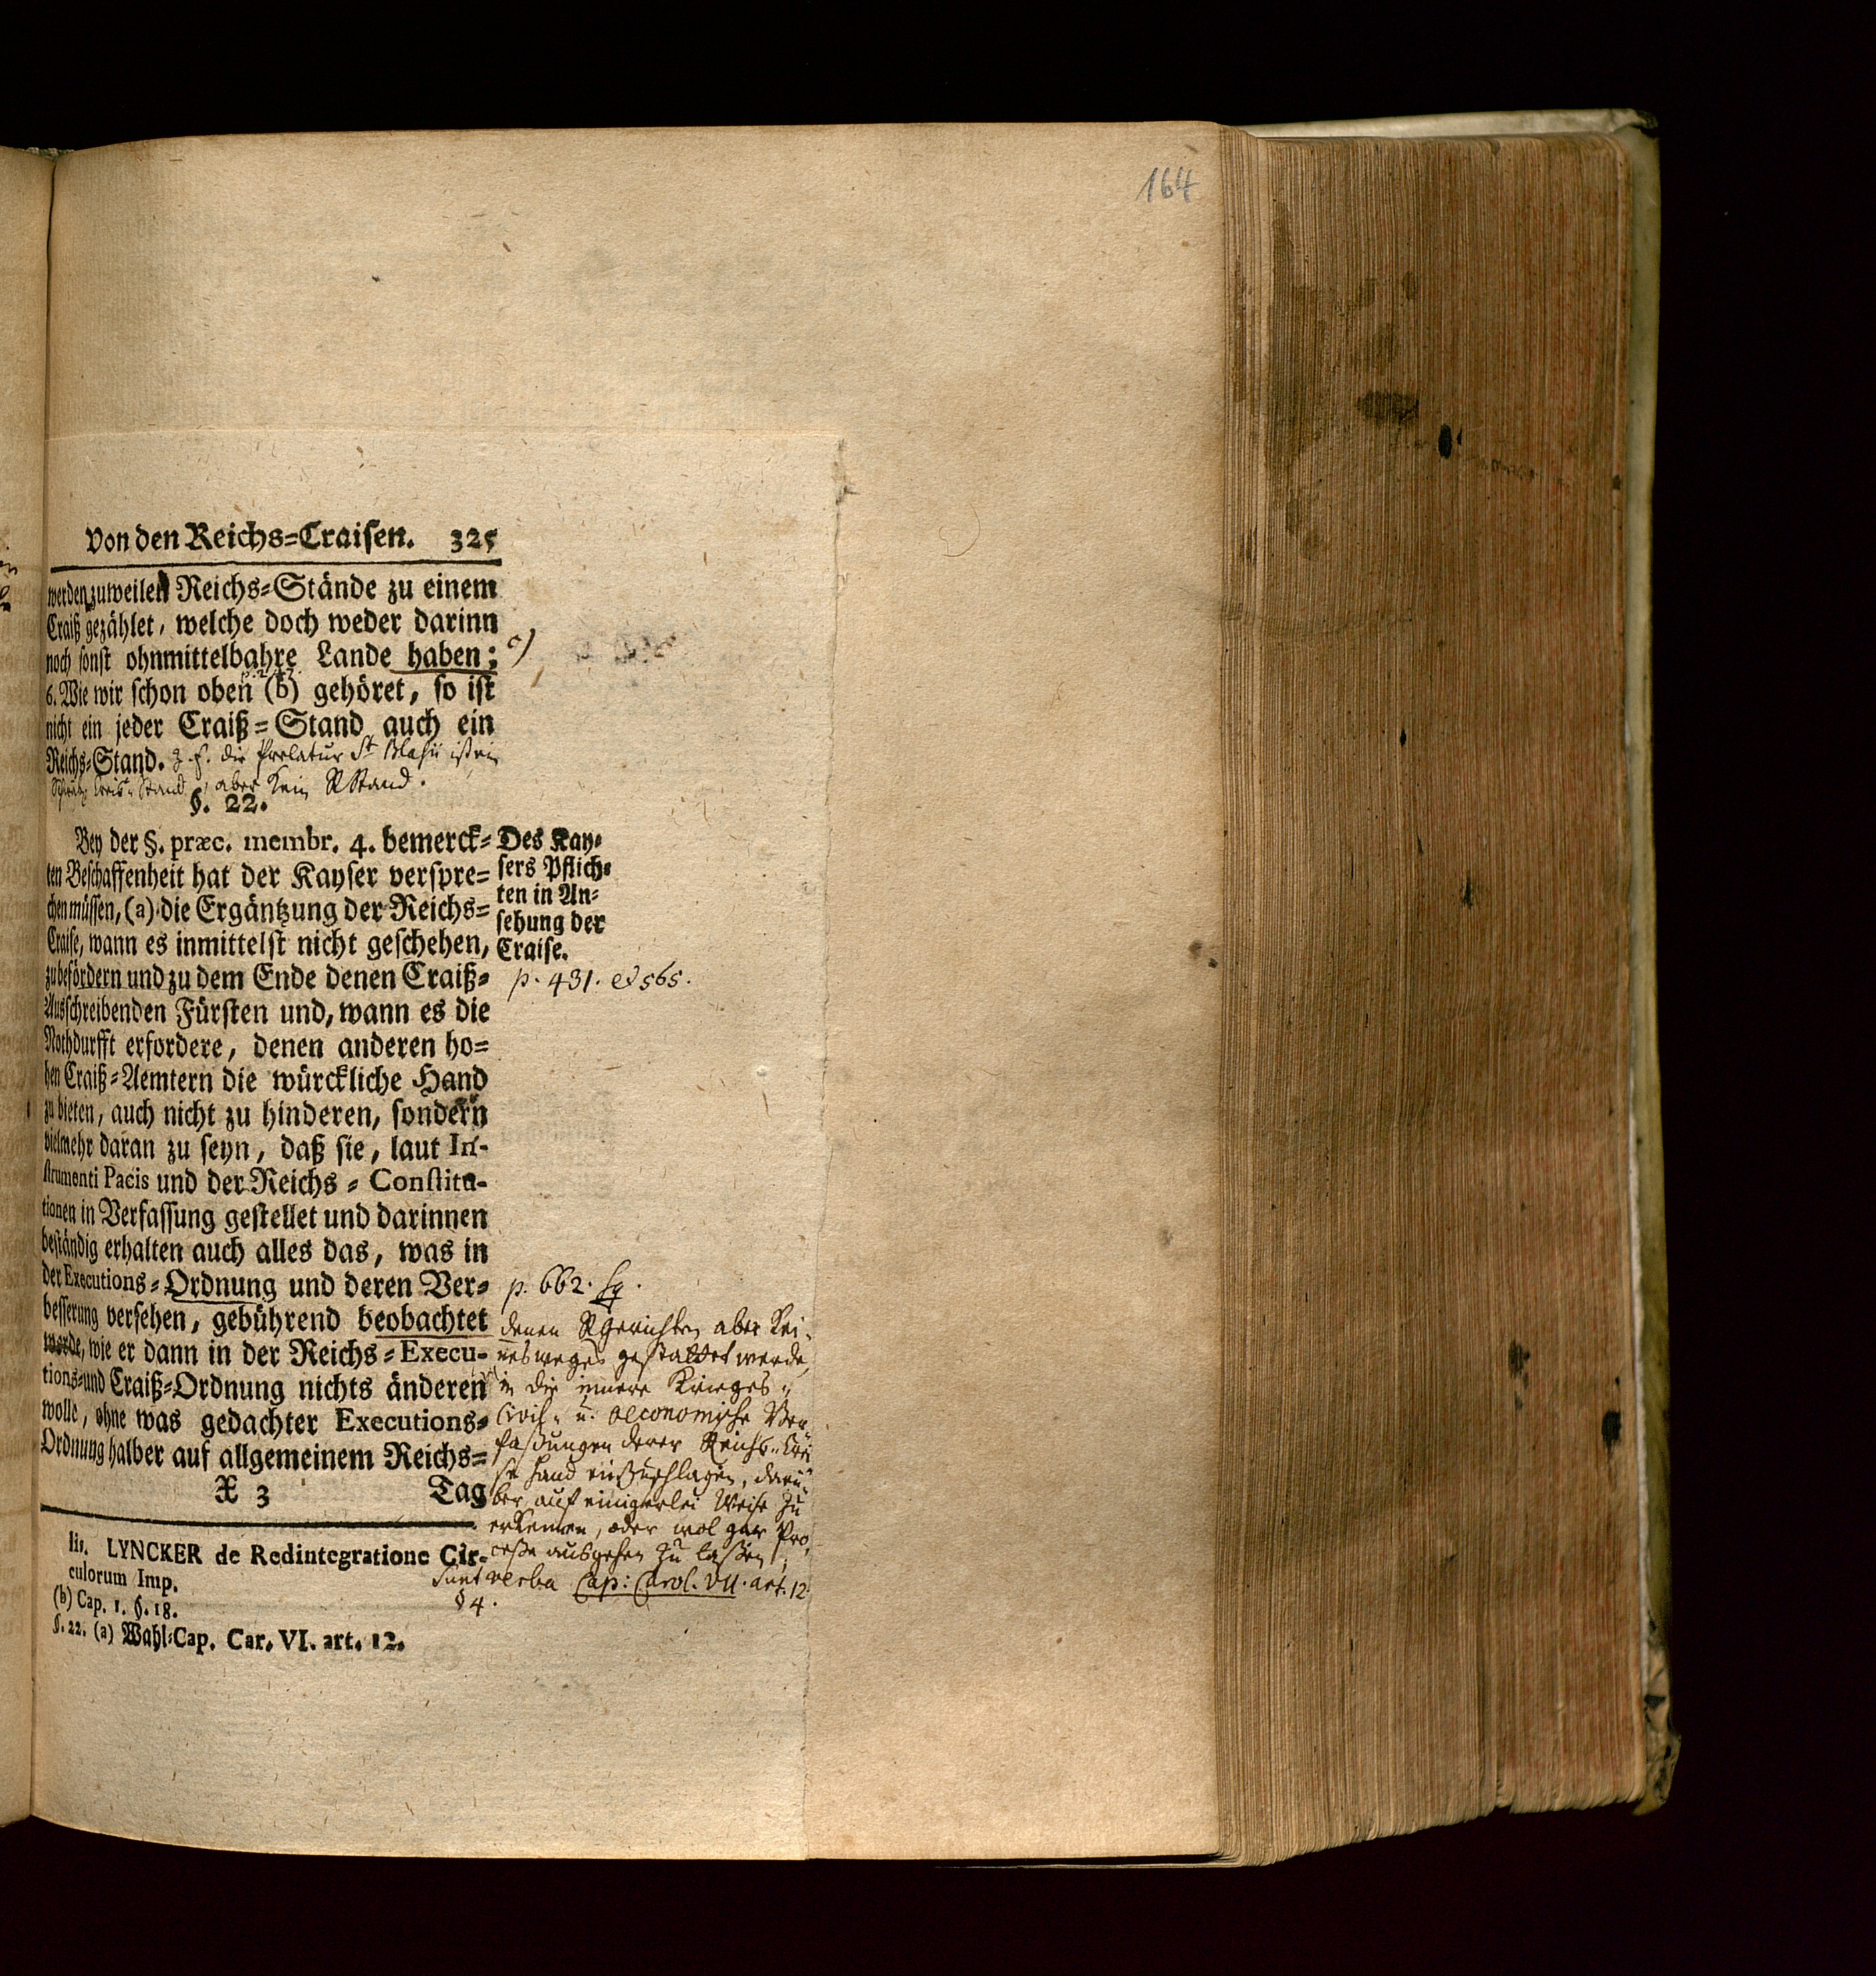 164
Von den Reichs=Craisen. 325
werden zuweilen Reichs=Stände zu einem
Craiß gezählet, welche doch weder darinn
noch sonst ohnmittelbahre Lande haben; c)
6. Wie wir schon oben (b) gehöret, so ist
nicht ein jeder Craiß=Stand auch ein
Reichs=Stand. Z. E. die Praelatur St Blasii ist ein
Schwäb. Creis-Stand, aber kein RStand.
§. 22.
Bey der §. præc. membr. 4. bemerck=
ten Beschaffenheit hat der Kayser verspre=
chen müssen, (a) die Ergäntzung der Reichs=
Craise, wann es inmittelst nicht geschehen,
zu befördern und zu dem Ende denen Craiß=
Ausschreibenden Fürsten und, wann es die
Nothdurfft erfordere, denen anderen ho=
hen Craiß=Aemtern die würckliche Hand
zu bieten, auch nicht zu hinderen, sondern
vielmehr daran zu seyn, daß sie, laut In-
strumenti Pacis und der Reichs=Constitu-
tionen in Verfassung gestellet und darinnen
beständig erhalten auch alles das, was in
der Executions=Ordnung und deren Ver=
besserung versehen, gebührend beobachtet
werde, wie er dann in der Reichs=Execu-
tions=und Craiß=Ordnung nichts änderen
wolle, ohne was gedachter Executions=
Ordnung halber auf allgemeinem Reichs=
X 3 Tag
Des Kay=
sers Pflich=
ten in An=
sehung der
Craise.
p. 431. et 565.
p. 662. sq.
denen RGerichten aber kei-
nesweges gestattet werde,
in die innere Krieges-
Civil- u. oeconomische Ver-
faßungen derer Reichs-Crei-
se Hand einzuschlagen, darü-
ber auf einigerlei Weise zu
erkennen, oder wol gar Pro-
ceße ausgehen zu laßen;
sunt verba Cap: Carol. VII. art. 12
§ 4.
lis. LYNCKER de Redintegratione Cir-
culorum Imp.
(b) Cap. 1. §. 18.
§. 22. (a) Wahl=Cap. Car. VI. art. 12.